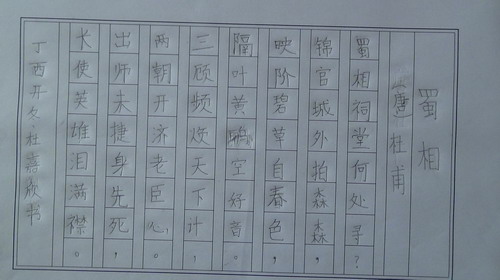 蜀相
(唐)杜甫
蜀相祠堂何处寻?
锦官城外拍森森,
映阶碧草自春色,
隔叶黄鹂空好音。
三顾频烦天下计,
两朝开济老臣心。
出师未捷身先死,
长使英雄泪满襟。
丁酉开冬·杜嘉欣书